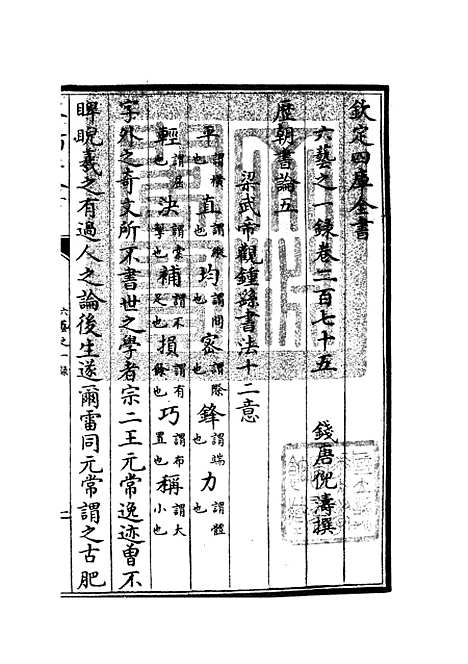 欽定四庫全書
六藝之一錄卷二百七十五
錢唐倪濤撰
歷朝書論五
梁武帝觀鍾繇書法十二意
平謂橫也直謂縱也均謂間也密謂際也鋒謂端也力謂體也
輕謂屈也決謂牽也補謂不足也損謂有餘也巧謂布置也稱謂大小也
字外之奇文所不書世之學者宗二王元常逸迹曽不
睥睨羲之有過人之論後生遂爾雷同元常謂之古肥
六藝之一錄